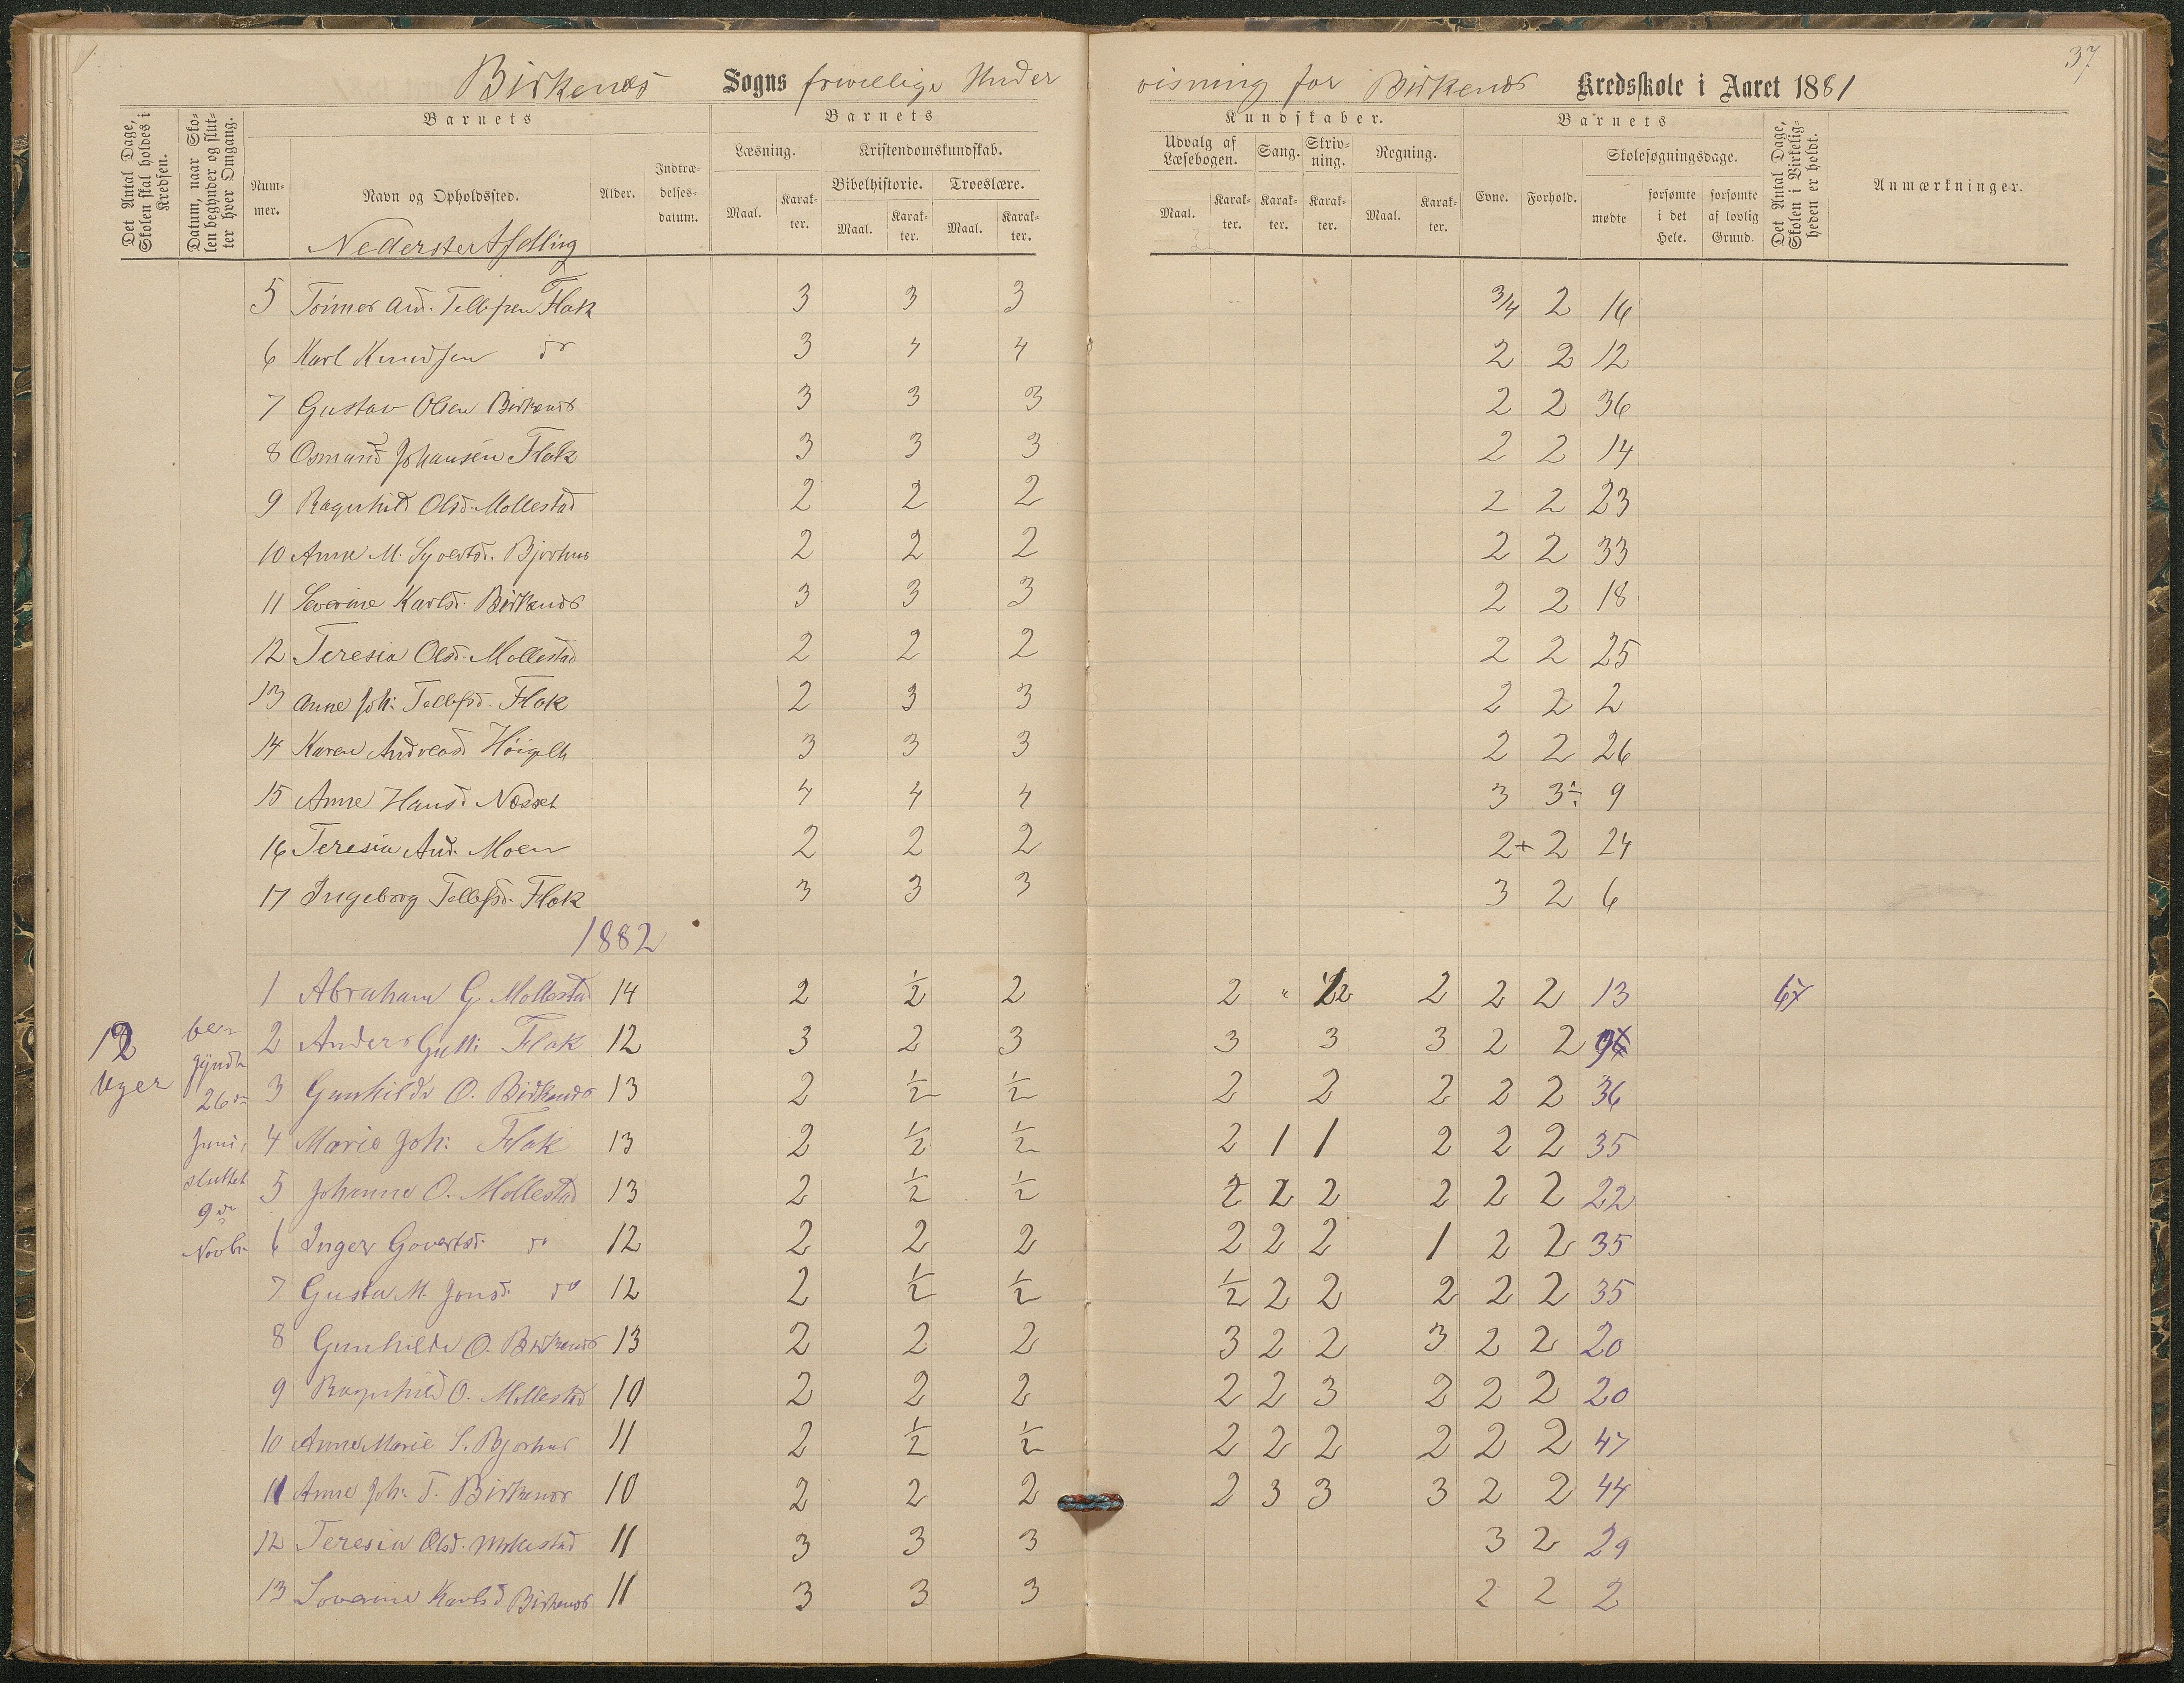 37
Birkenes Sogns frivillige Under visning for Birkenes Kredsskole i Aaret 1881
Det Antal Dage, Skolen skal holdes i Kredsen.
Datum, naar Skolen begynder og slutter hver Omgang.
Barnets
Nummer.
Navn og Opholdssted.
Alder.
Indtrædelsesdatum.
Barnets
Læsning.
Maal.
Karakter.
Kristendomskundskab.
Bibelhistorie.
Maal.
Karakter.
Troeslære.
Maal.
Karakter.
Kundskaber.
Udvalg af Læsebogen.
Maal.
Karakter.
Sang.
Karakter.
Skrivning.
Karakter.
Regning.
Maal.
Karakter.
Barnets
Evne.
Forhold.
Skolesøgningsdage.
mødte
forsømte i det Hele.
forsømte af lovlig Grund.
Det Antal Dage, Skolen i Virkeligheden er holdt.
Anmærkninger.
Nederste Afdling
5 Tønnes And. Tellefsen Flak 3 3 3 3/4 2 16
6 Karl Knudsen do 3 4 4 2 2 12
7 Gustav Olsen Birkenes 3 3 3 2 2 36
8 Osmund Johansen Flak 3 3 3 2 2 14
9 Ragnhild Olsd. Mollestad 2 2 2 2 2 23
10 Anne M. Syvertsd. Bjorhus 2 2 2 2 2 33
11 Severine Karlsd. Birkenes 3 3 3 2 2 18
12 Teresia Olsd. Mollestad 2 2 2 2 2 25
13 Anne Joh: Tellefsd. Flak 2 3 3 2 2 2
14 Karen Andreasd 3 3 3 2 2 26
15 Anne Hansd Næsset 4 4 4 3 3÷ 9
16 Teresia And. Moen 2 2 2 2+ 2 24
17 Ingeborg Tellefsd. Flak 3 3 3 3 2 6
1882
12 Uger
begyndte 26de Juni, sluttet 9de Novbr.
1 Abraham G. Mollestad 14 2 1/2 2 2 " 2 2 2 2 13 67
2 Anders Flak 12 3 2 3 3 3 3 2 2
3 Gunhilde O. Birkenes 13 2 1/2 1/2 2 2 2 2 2 36
4 Marie Joh: Flak 13 2 1/2 1/2 2 1 1 2 2 2 35
5 Johanne O. Mollestad 13 2 1/2 1/2 2 2 2 2 2 2 22
6 Inger Govertsd. do 12 2 2 2 2 2 2 1 2 2 35
7 Gusta M. Jonsd. do 12 2 1/2 1/2 1/2 2 2 2 2 2 35
8 Gunhilde O. Birkenes 13 2 2 2 3 2 2 3 2 2 20
9 Ragnhild O. Mollestad 10 2 2 2 2 2 3 2 2 2 20
10 Anne Marie S. Bjorhus 11 2 1/2 1/2 2 2 2 2 2 2 47
11 Anne Joh: T. Birkenes 10 2 2 2 2 3 3 3 2 2 44
12 Teresia Olsd. Mollestad 11 3 3 3 3 2 29
13 Severine Karlsd Birkenes 11 3 3 3 2 2 2